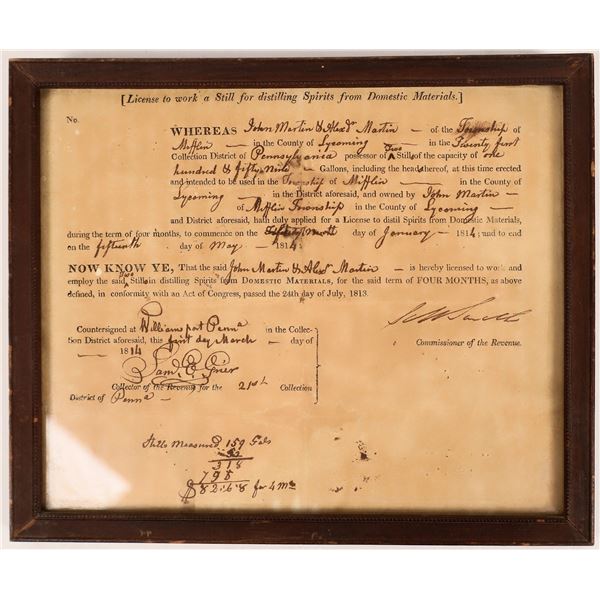 [License to work a Still for distilling Spirits from Domestic Materials.]
No.
WHEREAS John Martin & Alexdr Martin — of the Township of
Mifflin — in the County of Lycoming — in the Twenty first
Collection District of Pennsylvania possessor of Two Still of the capacity of one
hundred & fifty Nine — Gallons, including the head thereof, at this time erected
and intended to be used in the Township of Mifflin — in the County of
Lycoming — and District aforesaid, and owned by John Martin —
of Mifflin Township in the County of Lycoming —
and District aforesaid, hath duly applied for a License to distil Spirits from Domestic Materials,
during the term of four months, to commence on the day of January — 1814; and to end
on the fifteenth day of May — 1814
NOW KNOW YE, That the said John Martin & Alexdr Martin — is hereby licensed to work and
employ the said Two Still in distilling Spirits from DOMESTIC MATERIALS, for the said term of FOUR MONTHS, as above
defined, in conformity with an Act of Congress, passed the 24th day of July, 1813.
Countersigned at Williamsport Penna in the Collec-
tion District aforesaid, this first day March — day of
— 1814
Commissioner of the Revenue.
Collector of the Revenue for the 21st Collection
District of Penna
Stills Measured 159 Gals
52
318
795
$82.68 for 4 Ms